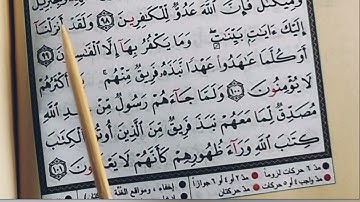 وَمِيكَىٰلَ فَإِنَّ ٱللَّهَ عَدُوٌّ لِّلْكَـٰفِرِينَ ٩٨ وَلَقَدْ أَنزَلْنَآ
إِلَيْكَ ءَايَـٰتٍۭ بَيِّنَـٰتٍ ۖ وَمَا يَكْفُرُ بِهَآ إِلَّا ٱلْفَـٰسِقُونَ ٩٩
أَوَكُلَّمَا عَـٰهَدُوا۟ عَهْدًا نَّبَذَهُۥ فَرِيقٌ مِّنْهُم ۚ بَلْ أَكْثَرُهُمْ
لَا يُؤْمِنُونَ ١٠٠ وَلَمَّا جَآءَهُمْ رَسُولٌ مِّنْ عِندِ ٱللَّهِ
مُصَدِّقٌ لِّمَا مَعَهُمْ نَبَذَ فَرِيقٌ مِّنَ ٱلَّذِينَ أُوتُوا۟ ٱلْكِتَـٰبَ
كِتَـٰبَ ٱللَّهِ وَرَآءَ ظُهُورِهِمْ كَأَنَّهُمْ لَا يَعْلَمُونَ ١٠١
مدّ ٦ حركات لزوماً مدّ ٢ أو ٤ أو ٦ جوازاً إخفاء، ومواقع الغنّة
مدّ واجب ٤ أو ٥ حركات مدّ حركتان